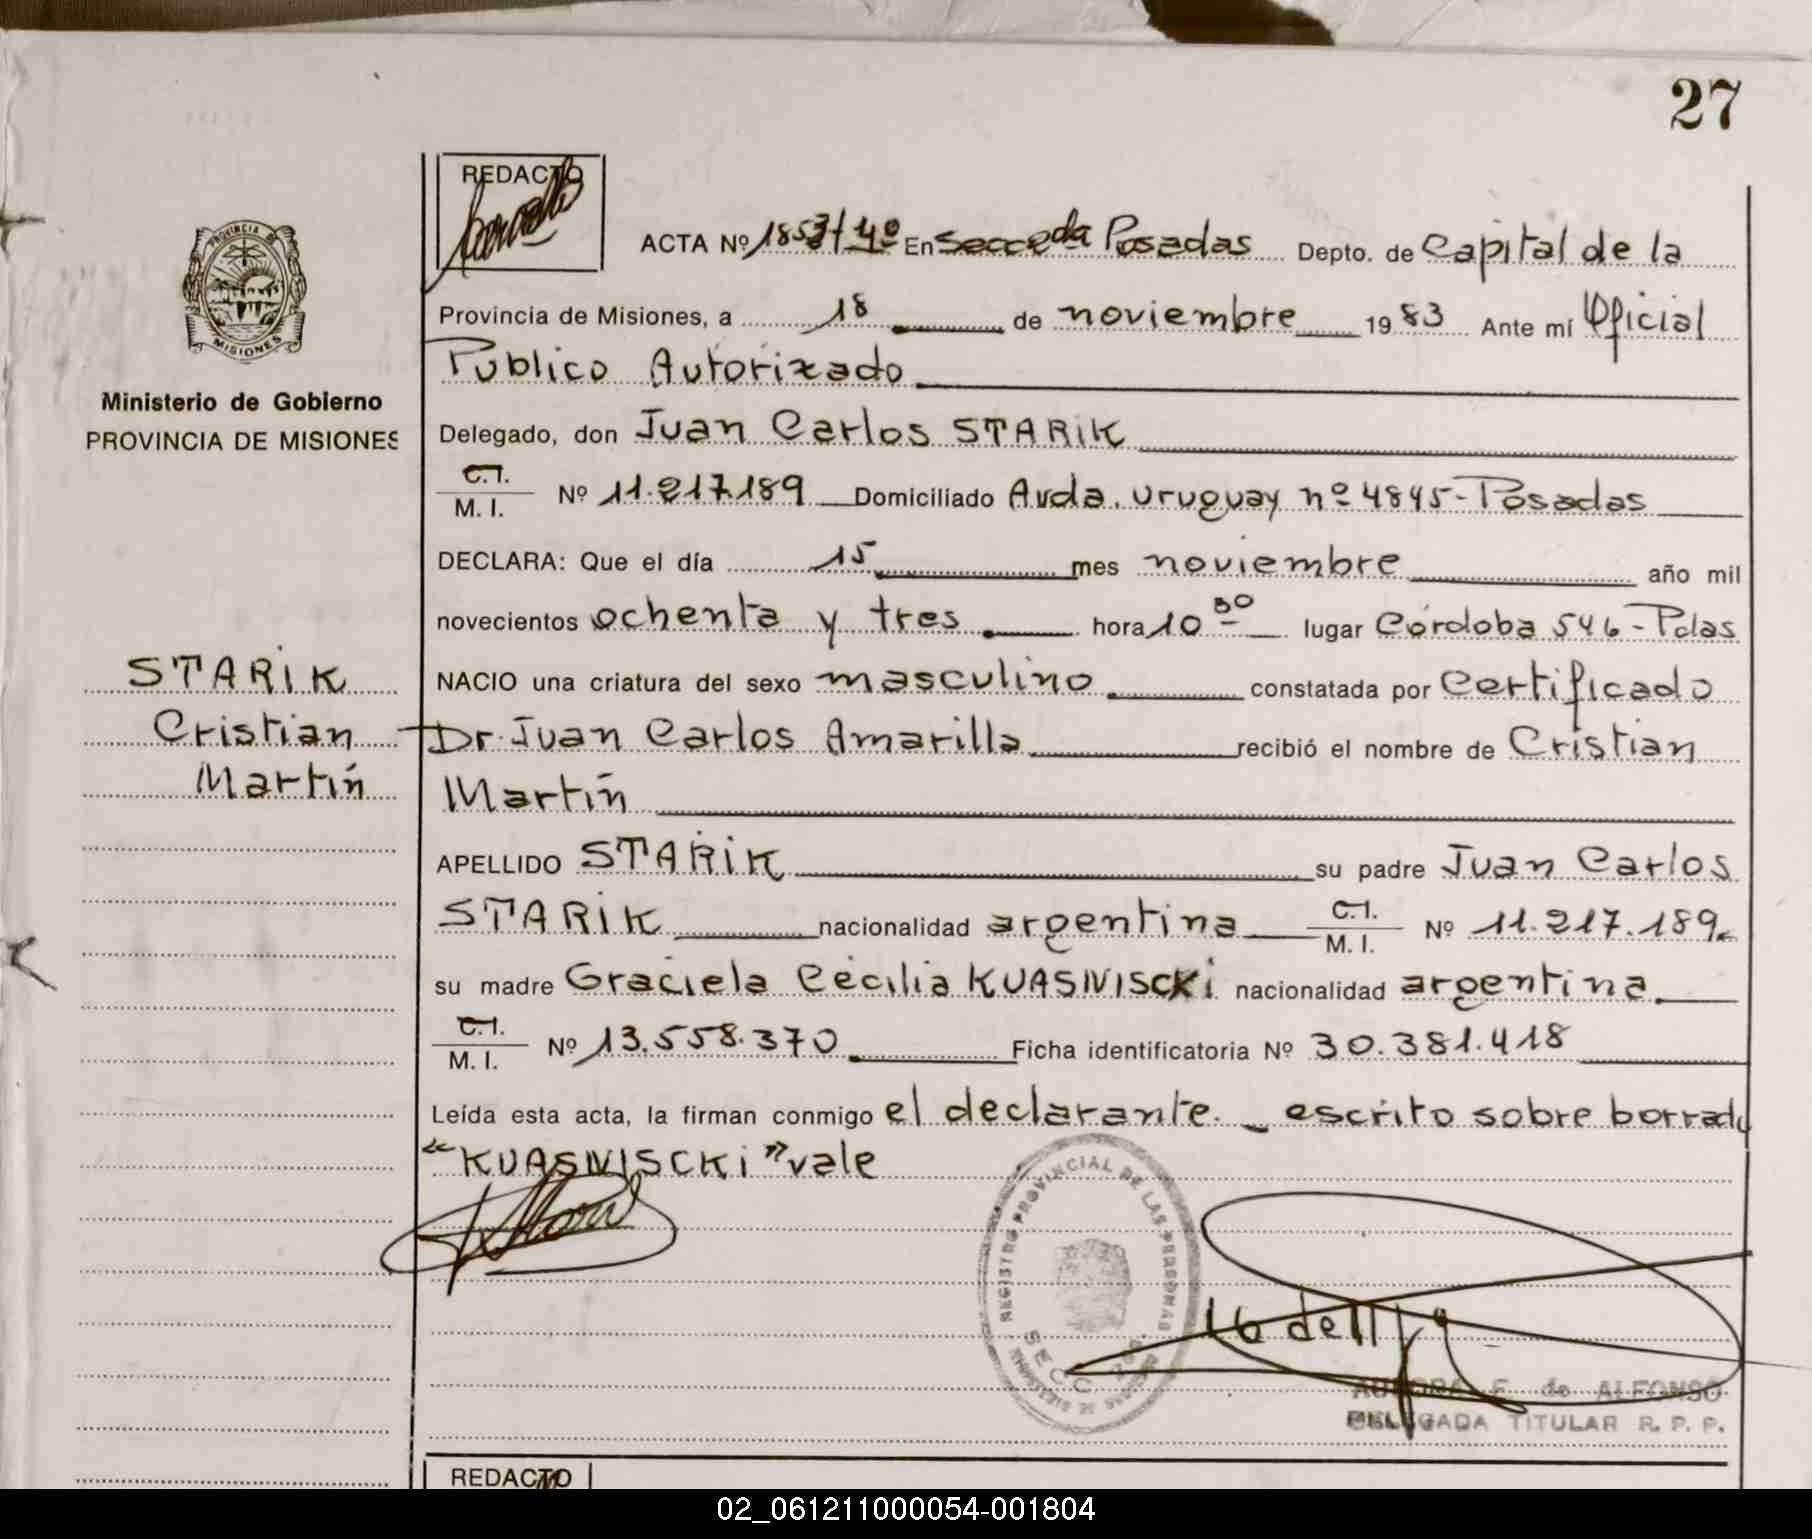 27
REDACTO
ACTA Nº 1853/4º En Secc 2da Posadas Depto. de Capital de la
PROVINCIA DE
MISIONES
Provincia de Misiones, a 18 de noviembre 1983 Ante mí Oficial
Público Autorizado
Ministerio de Gobierno
PROVINCIA DE MISIONES
Delegado, don Juan Carlos STARIK
C.I.
M. I. Nº 11.217.189 Domiciliado Avda. Uruguay nº 4845-Posadas
DECLARA: Que el día 15 mes noviembre año mil
novecientos ochenta y tres hora 10 30 lugar Córdoba 546-Pdas
STARIK
Cristian
Martín
NACIO una criatura del sexo masculino constatada por Certificado
Dr. Juan Carlos Amarilla recibió el nombre de Cristian
Martín
APELLIDO STARIK su padre Juan Carlos
STARIK nacionalidad argentina C.I.
M. I. Nº 11.217.189
su madre Graciela Cecilia KUASNISCKI nacionalidad argentina
C.I.
M. I. Nº 13.558.370 Ficha identificatoria Nº 30.381.418
Leída esta acta, la firman conmigo el declarante. escrito sobre borrado
"KUASNISCKI" vale
REGISTRO PROVINCIAL DE LAS PERSONAS
SECC.
16 de
E. de ALFONSO
DELEGADA TITULAR R. P. P.
REDACTO
02_061211000054-001804